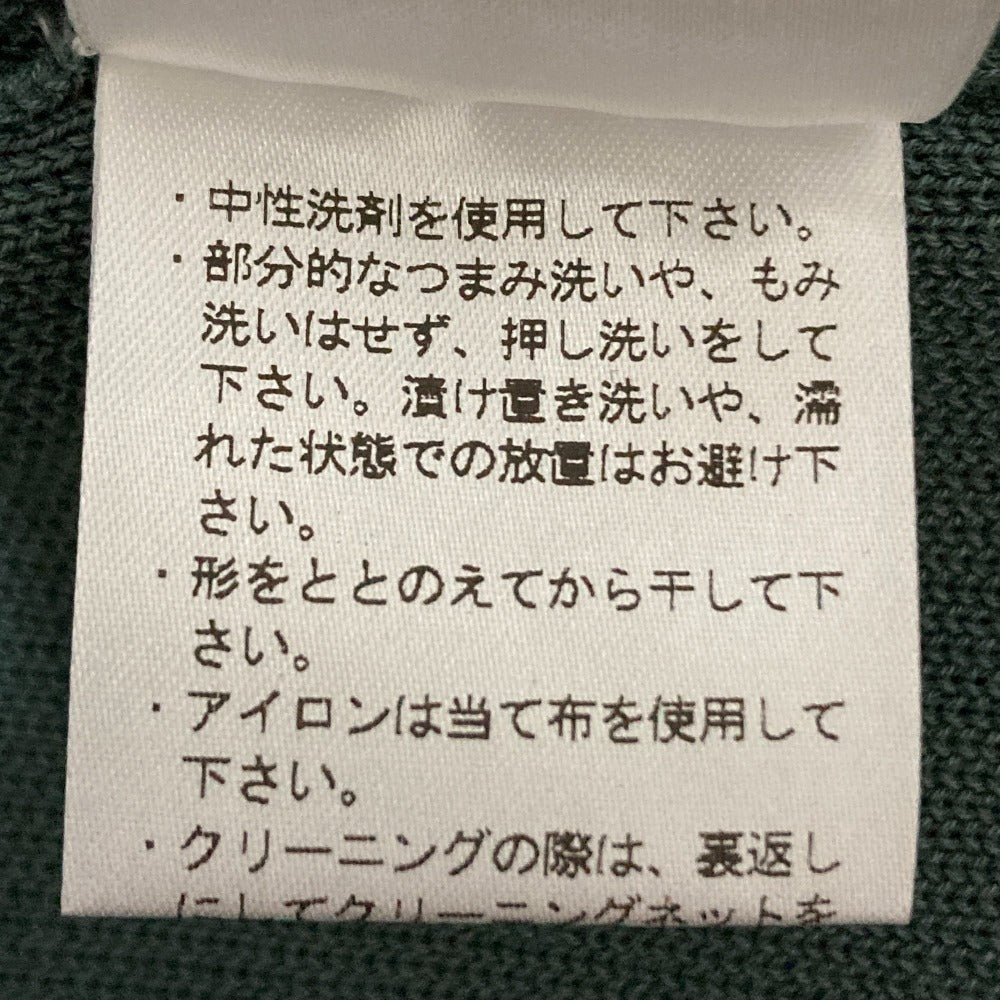 ・中性洗剤を使用して下さい。
・部分的なつまみ洗いや、もみ
洗いはせず、押し洗いをして
下さい。漬け置き洗いや、濡
れた状態での放置はお避け下
さい。
・形をととのえてから干して下
さい。
・アイロンは当て布を使用して
下さい。
・クリーニングの際は、裏返し
にしてクリーニングネットを